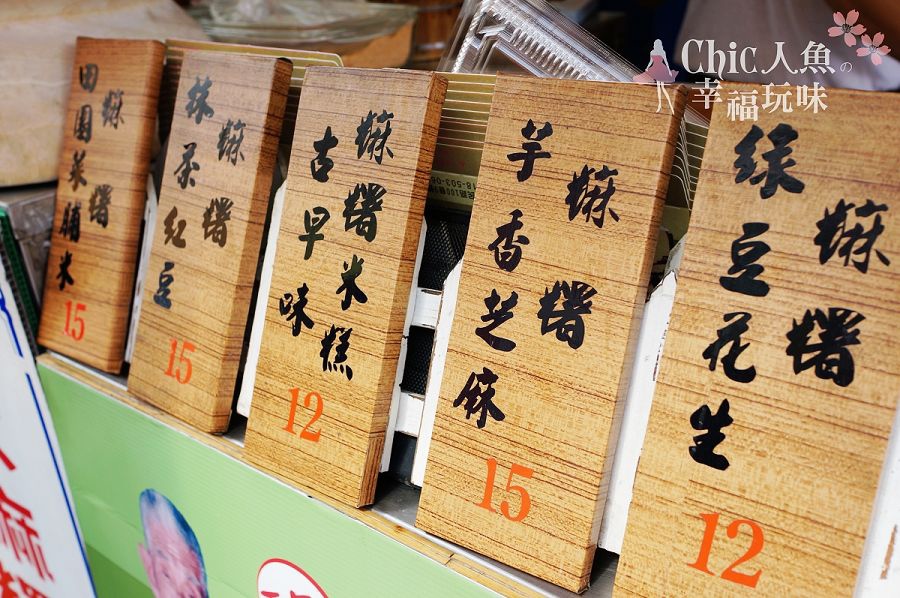 Chic人魚の
幸福玩味
田園菜脯米
麻糬
15
抹茶紅豆
麻糬
15
古早味
麻糬米糕
12
芋香芝麻
麻糬
15
綠豆花生
麻糬
12